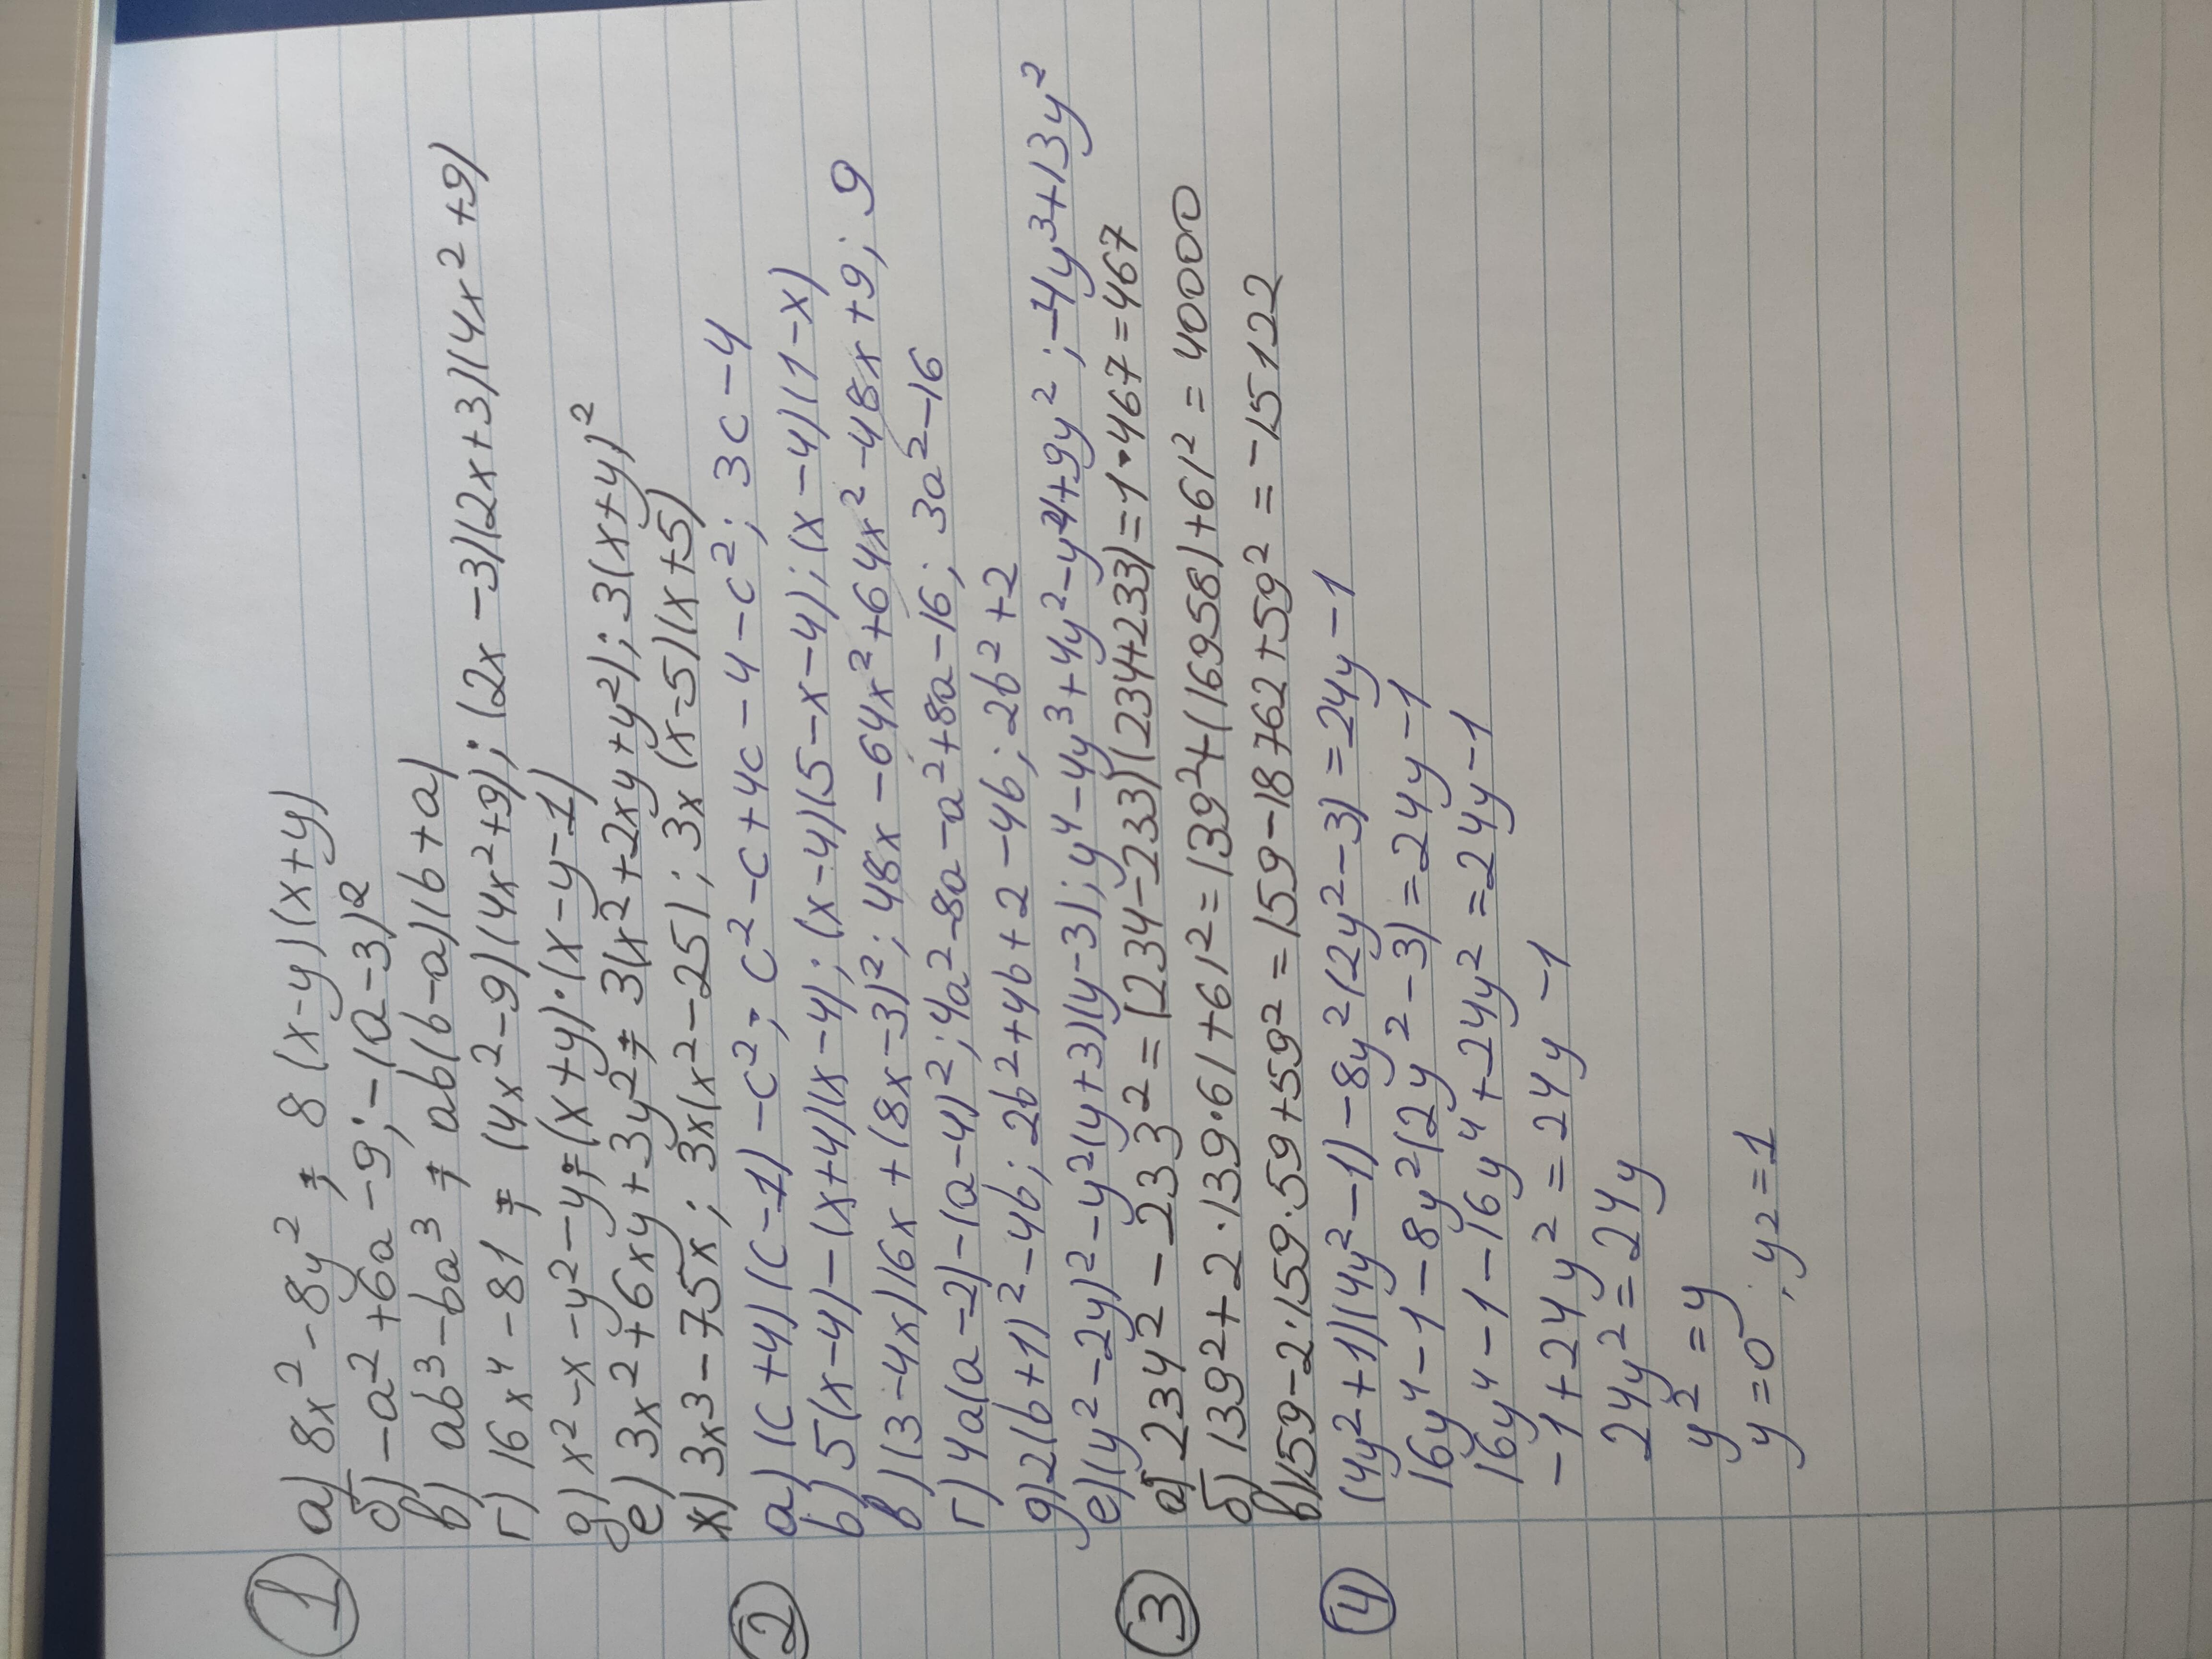 1
а) 8x² - 8y² = 8(x-y)(x+y)
б) -a² + 6a - 9; -(a-3)²
в) ab³ - ba³ = ab(b-a)(b+a)
г) 16x⁴ - 81 = (4x²-9)(4x²+9); (2x-3)(2x+3)(4x²+9)
д) x²-x-y²-y = (x+y)·(x-y-1)
е) 3x²+6xy+3y² = 3(x²+2xy+y²); 3(x+y)²
ж) 3x³-75x; 3x(x²-25); 3x(x-5)(x+5)
2
а) (c+4)(c-1)-c²; c²-c+4c-4-c²; 3c-4
б) 5(x-4)-(x+4)(x-4); (x-4)(5-x-4); (x-4)(1-x)
в) (3-4x)16x+(8x-3)²; 48x-64x²+64x²-48x+9; 9
г) 4a(a-2)-(a-4)²; 4a²-8a-a²+8a-16; 3a²-16
д) 2(b+1)²-4b; 2b²+4b+2-4b; 2b²+2
е) (y²-2y)²-y²(y+3)(y-3); y⁴-4y³+4y²-y⁴+9y²; -4y³+13y²
3
а) 234²-233²=(234-233)(234+233)=1·467=467
б) 139²+2·139·61+61²=139²+(16958)+61²=40000
в) 159-2·159·59+59²=159-18762+59²=-15122
4
(4y²+1)(4y²-1)-8y²(2y²-3)=24y-1
16y⁴-1-8y²(2y²-3)=24y-1
16y⁴-1-16y⁴+24y²=24y-1
-1+24y²=24y-1
24y²=24y
y²=y
y=0; y₂=1